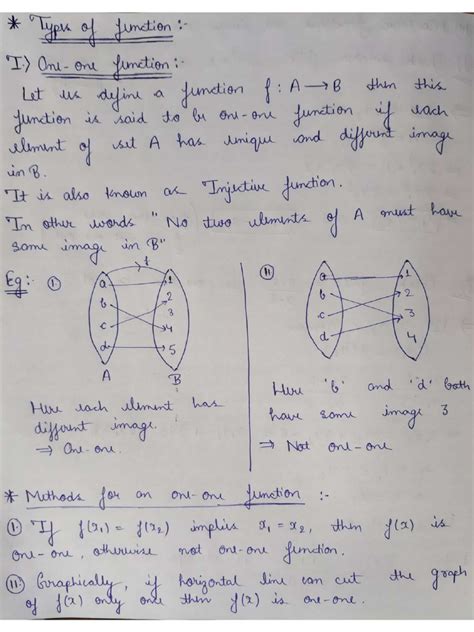 * Types of function :-
I.) One-one function :-
Let us define a function f : A → B then this
function is said to be one-one function if each
element of set A has unique and different image
in B.
It is also known as Injective function.
In other words " No two elements of A must have
same image in B"
Eg :- (i)
f
a 1
b 2
c 3
d 4
5
A B
Here each element has
different image.
⇒ One-one.
(ii)
a 1
b 2
c 3
d 4
Here 'b' and 'd' both
have same image 3
⇒ Not one-one
* Methods for an one-one function :-
(i) If f(x₁) = f(x₂) implies x₁ = x₂, then f(x) is
one-one, otherwise not one-one function.
(ii) Graphically, if horizontal line can cut the graph
of f(x) only one then f(x) is one-one.